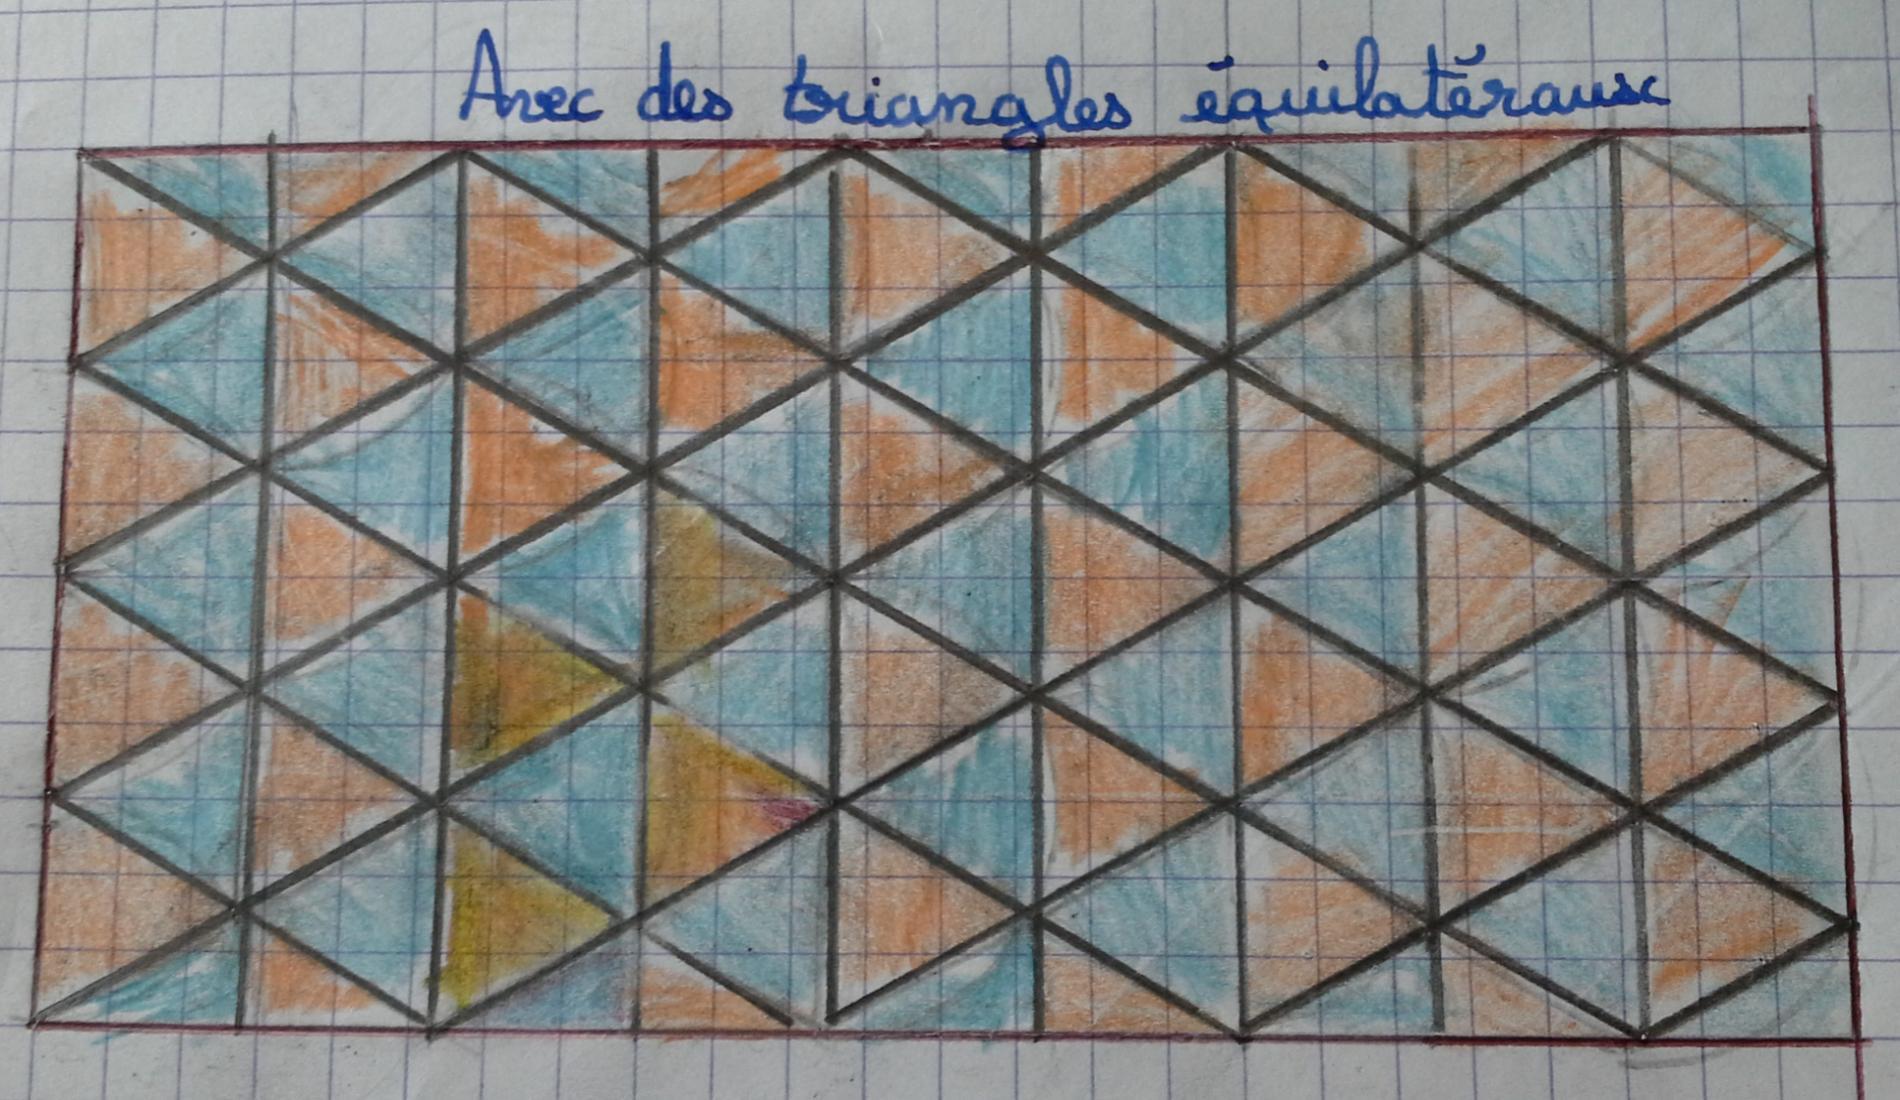 Avec des triangles équilatéraux